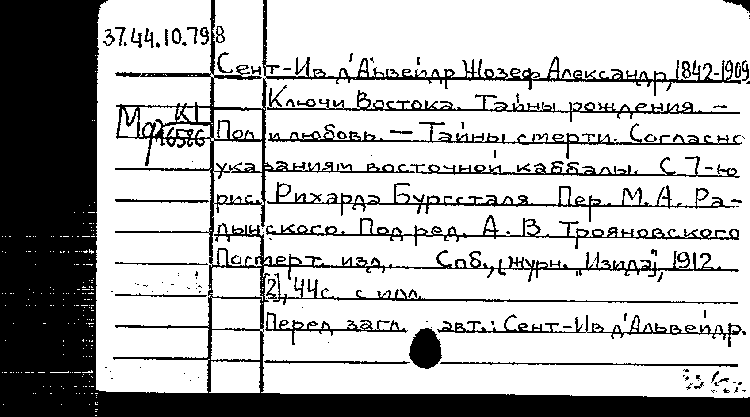 37.44.10.798
Сент-Ив д'Альвейдр Жозеф Александр, 1842-1909
Ключи Востока. Тайны рождения. –
Мф К1
16586
Пол и любовь. – Тайны смерти. Согласно
указаниям восточной каббалы. С 7-ю
рис. Рихарда Бургсталя. Пер. М. А. Ра-
дынского. Под ред. А. В. Трояновского
Посмерт. изд. Спб., журн. „Изида", 1912.
[2], 44с. с илл.
Перед загл. авт.: Сент-Ив д'Альвейдр.